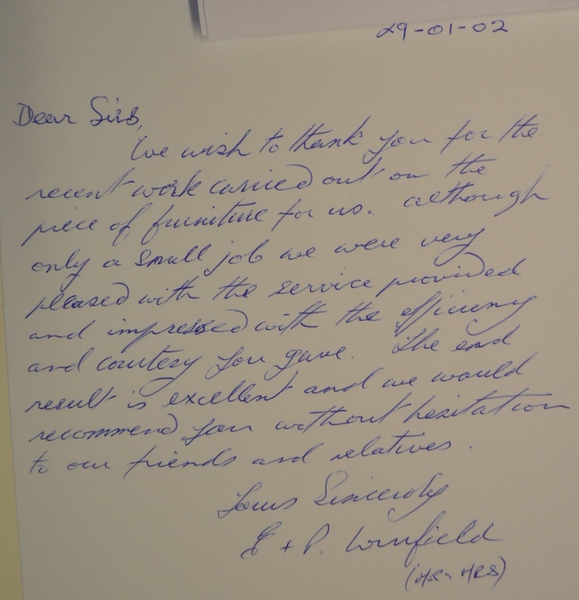 29-01-02
Dear Sirs,
We wish to thank you for the
recent work carried out on the
piece of furniture for us. although
only a small job we were very
pleased with the service provided
and impressed with the efficiency
and courtesy you gave. The end
result is excellent and we would
recommend you without hesitation
to our friends and relatives.
Yours Sincerely
E + P.
(MR + MRS)